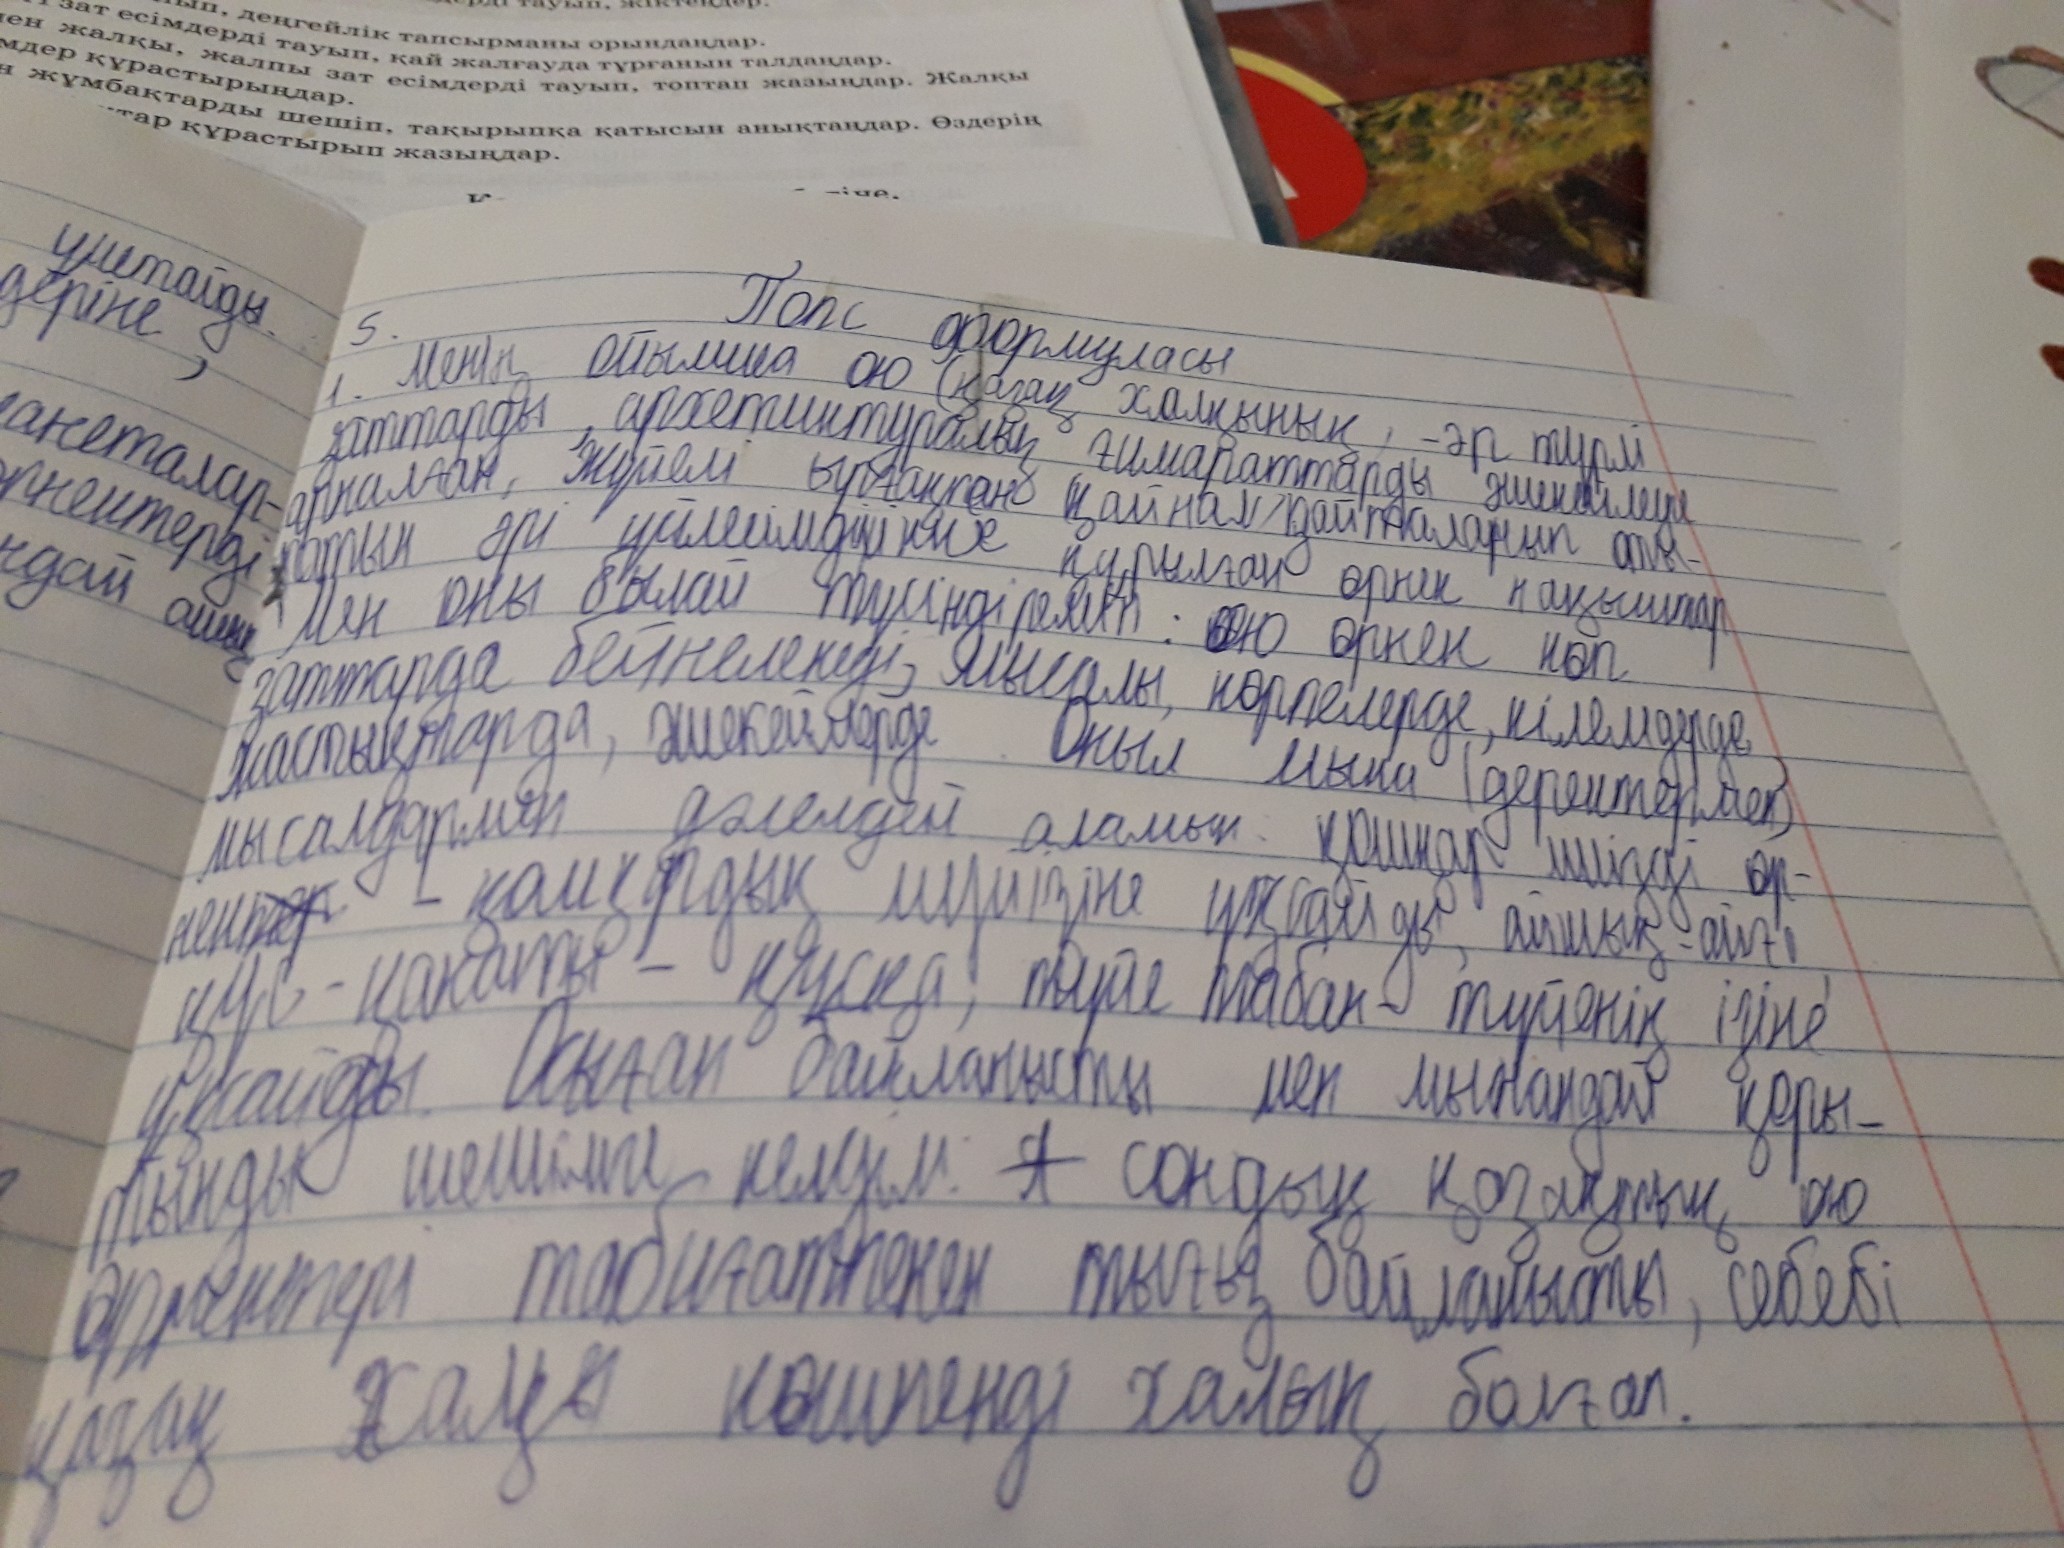 деңгейлік тапсырманы орындаңдар.
зат есімдерді тауып, қай жалғауда тұрғанын талдаңдар.
жалқы, жалпы зат есімдерді тауып, топтап жазыңдар. Жалқы
құрастырыңдар.
жұмбақтарды шешіп, тақырыпқа қатысын анықтаңдар. Өздерің
құрастырып жазыңдар.
ұштайды.
деріне,
5. Попс формуласы
1. Менің ойымша ою (қазақ халқының, -әр түрлі
заттарды, архетиктуралық ғимараттарды әшекейлеуге
арналған, жүйелі ырғақпен қайталанып оты-
ратын әрі үйлесімділікпе құрылған өрнек нақыштар
Мен оны былай түсіндіремін: ою өрнек көп
заттарда бейнеленеді, мысалы, көрпелерде, кілемдерде,
жастықтарда, әшекейлерде. Оныл мына (деректермен)
мысалдармен дәлелдей аламын: қошқар мүйізді өр-
нек - қошқардың мүйізіне ұқсайды, аймық-айға
құс-қанаты - құсқа, түйе табан - түйенің ізіне
ұқсайды. Осыған байланысты мен мынандай қоры-
тынды шешімге келдім: сондық қазақтың ою
өрнектері табиғатпенен тығыз байланысты, себебі
қазақ халқы көшпенді халық болған.